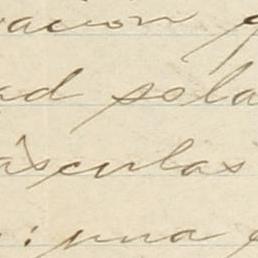 vacion
ad sola
ásculas
: una